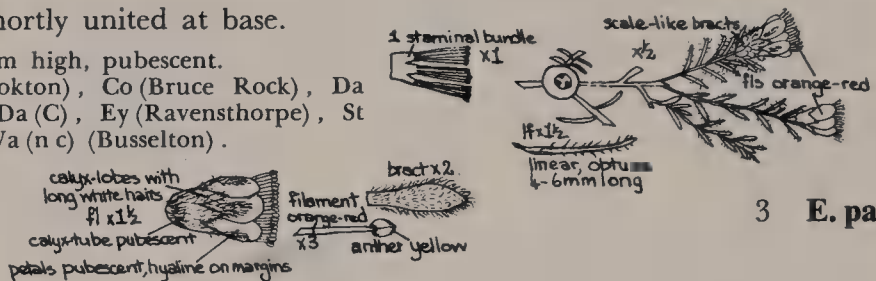 hortly united at base.
m high, pubescent.
okton), Co (Bruce Rock), Da
Da (C), Ey (Ravensthorpe), St
Va (n c) (Busselton).
1 staminal bundle
x1
scale-like bracts
x½
fls orange-red
lf x1½
linear,
4-6mm long
calyx-lobes with
long white hairs
fl x1½
calyx-tube pubescent
petals pubescent, hyaline on margins
bract x2
filament,
orange-red
x3
anther yellow
3 E. pa